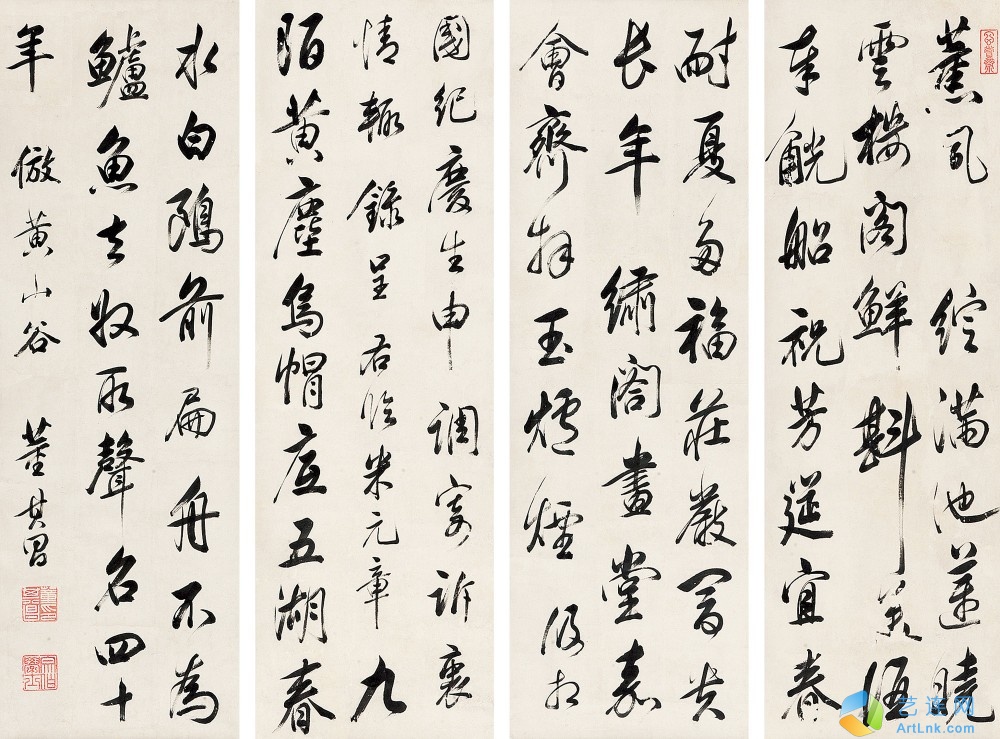 薰風綻滿池蓮曉
雲樓閣鮮斟美
奉觥船祝芳筵宜春
耐夏多福莊嚴富貴
長年 繡閣畫堂嘉
會齊拜玉爐煙 後相
國紀慶生申 調寄訴衷
情輒錄呈 右臨米元章 九
陌黃塵烏帽底五湖春
水白鷗前扁舟不為
鱸魚去收取聲名四十
年 倣黃山谷 董其昌
艺连网
ArtLnk.com